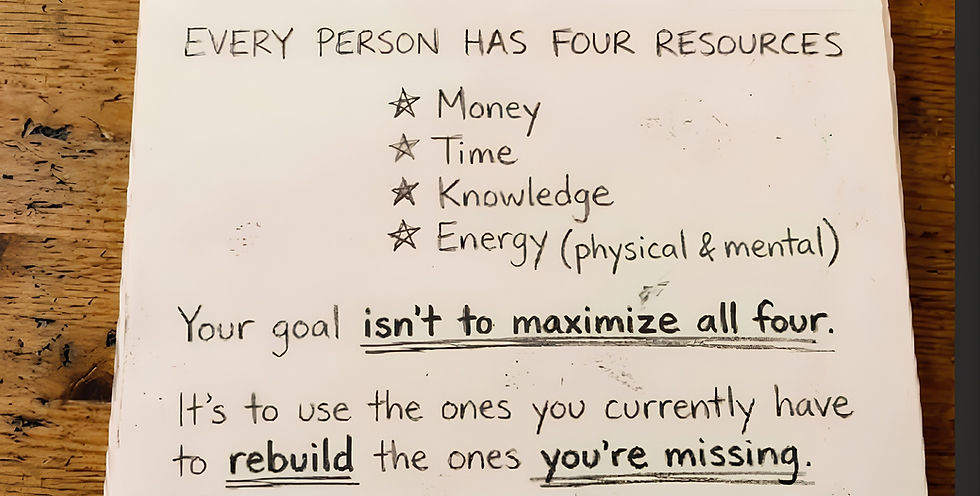 EVERY PERSON HAS FOUR RESOURCES
☆ Money
☆ Time
☆ Knowledge
☆ Energy (physical & mental)
Your goal isn't to maximize all four.
It's to use the ones you currently have
to rebuild the ones you're missing.